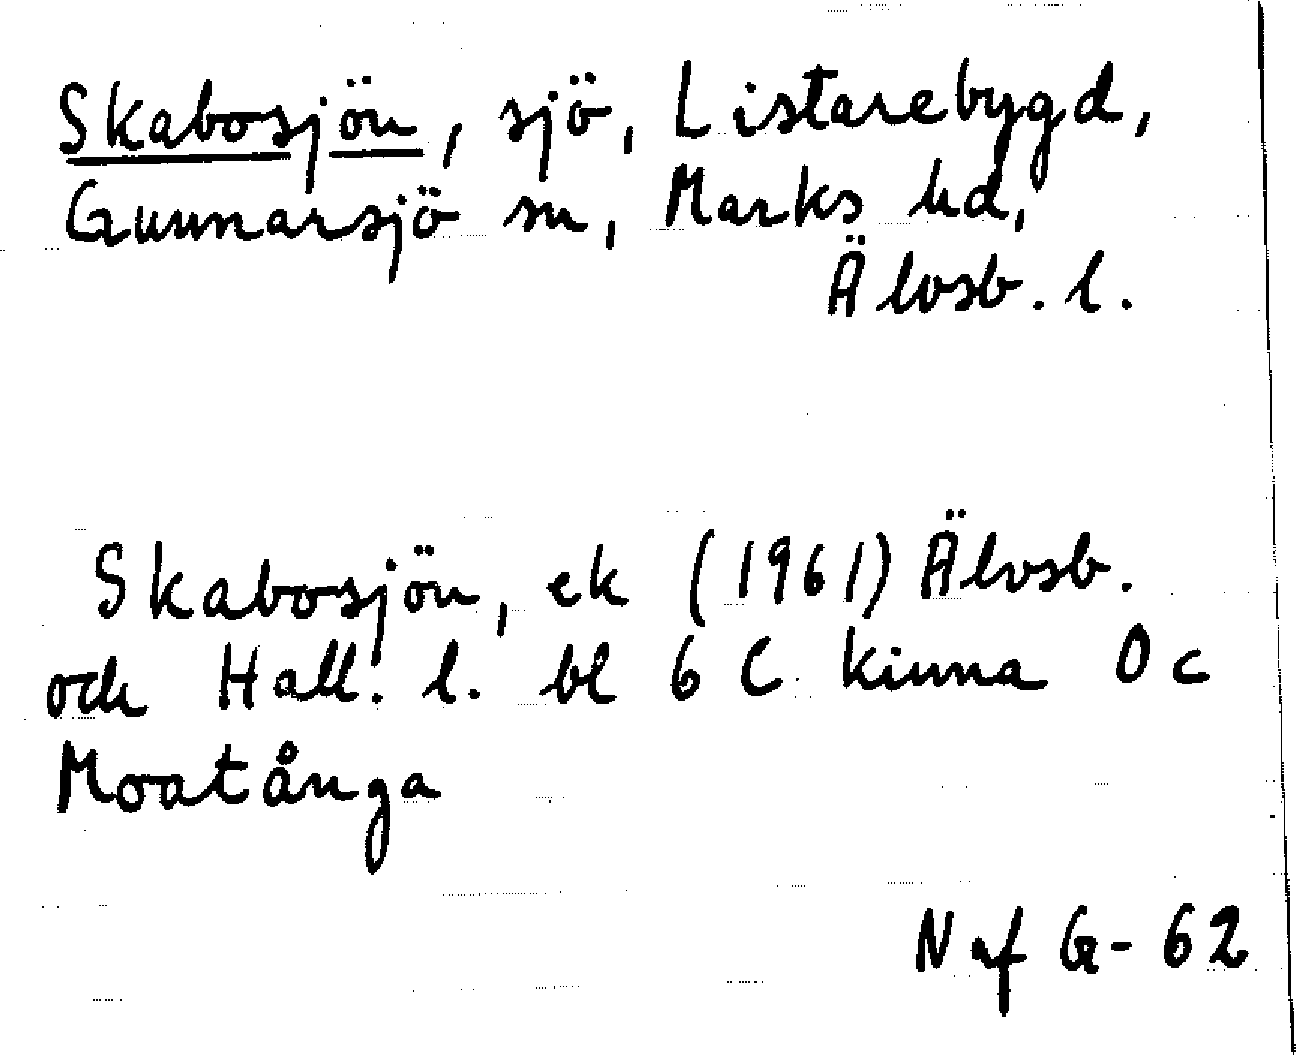 Skabosjön, sjö, Listarebygd,
Gunnarsjö sn, Marks hd,
Älvsb. l.
Skabosjön, ek (1961) Älvsb.
och Hall. l. bl 6 C Kinna 0 c
Moatånga
N af G-62